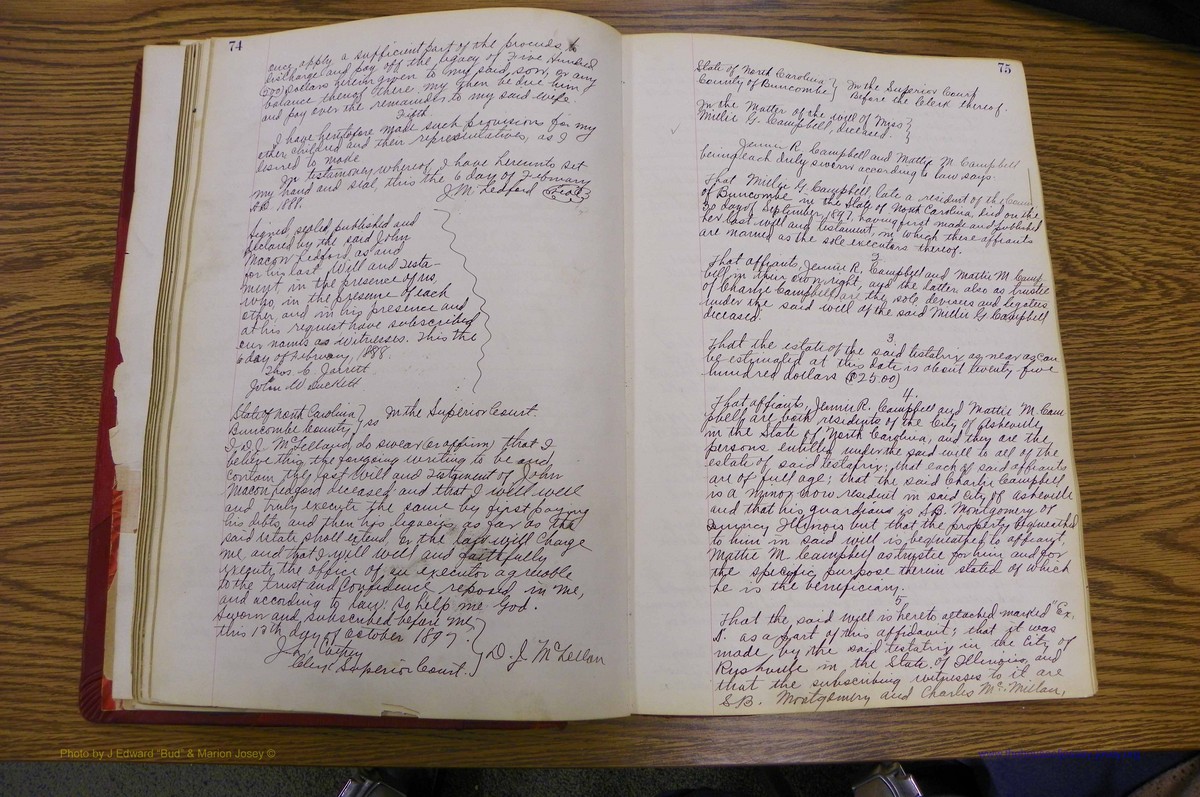 74
cuer, apply a sufficient part of the proceeds, to
discharge and pay off the legacy of Five Hundred
(500) Dollars herein given to my said son, or any
balance thereof there. my then be due him,
and pay over the remainder to my said wife.
Fifth
I have heretofore made such provision for my
other children and their representatives, as I
desired to made.
In testimony whereof I have hereunto set
my hand and seal, this the 6 day of February
A.D. 1888.
J. M. Ledford (Seal)
Signed, sealed, published and
declared by the said John
Macon Ledford as and
for his last Will and Testa-
ment in the presence of us,
who, in the presence of each
other, and in his presence and
at his request have subscribed
our names as witnesses. This the
6 day of February, 1888.
Thos C Jarrett
John W Duckett
State of North Carolina } ss In the Superior Court.
Buncombe County
I D. J. McClelland do swear (or affirm) that I
believe this the foregoing writing to be and
contain the last Will and Testament of John
Macon Ledford deceased, and that I will well
and truly execute the same by first paying
his debts, and then his legacies as far as the
said estate shall extend, or the law will charge
me, and that I will well and faithfully
execute the office of an executor agreeable
to the trust and confidence reposed in me,
and according to law: So help me God.
Sworn and subscribed before me
this 13th day of October 1897
Clerk Superior Court. } D. J. McClellan
75
State of North Carolina } In the Superior Court
County of Buncombe } Before the Clerk thereof.
In the Matter of the will of Miss }
Millie G. Campbell, deceased. }
Jennie R. Campbell and Mattie M. Campbell
being each duly sworn according to law says:
1
That Millie G. Campbell, late a resident of the County
of Buncombe in the State of North Carolina, died on the
30 day of September, 1897, having first made and published
her last will and testament, in which these affiants
are named as the sole executors thereof.
2
That affiants, Jennie R. Campbell and Mattie M. Camp-
bell in their own right, and the latter also as trustee
of Charlie Campbell, are the sole devisees and legatees
under the said will of the said Millie G Campbell
deceased.
3.
That the estate of the said testatrix as near as can
be estimated at this date is about twenty-five
hundred dollars ($25.00)
4.
That affiants, Jennie R. Campbell and Mattie M. Cam
pbell are both residents of the City of Asheville
in the State of North Carolina, and they are the
persons entitled under the said will to all of the
estate of said testatrix; that each of said affiants
are of full age; that the said Charlie Campbell
is a minor now resident in said City of Asheville
and that his guardian is S.B. Montgomery of
Quincy Illinois but that the property bequeathed
to him in said will is bequeathed to affiant,
Mattie M. Campbell as trustee for him and for
the specific purpose therein stated of which
he is the beneficiary.
5
That the said will is hereto attached marked "Ex.
A" as a part of this affidavit; that it was
made by the said testatrix in the City of
Rushville in the State of Illinois, and
that the subscribing witnesses to it are
S.B. Montgomery and Charles McMillan,
Photo by J Edward "Bud" & Marion Josey ©